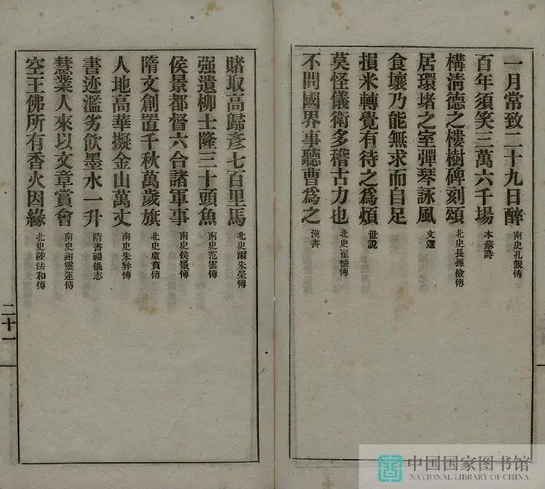 一月常致二十九日醉 南史孔覬傳
百年須笑三萬六千場 本蘇詩
構清德之樓樹碑刻頌 北史長孫儉傳
居環堵之室彈琴詠風 文選
食壤乃能無求而自足
損米轉覺有待之爲煩 世說
莫怪儀衛多稽古力也 北史崔傳
不問國界事聽曹爲之 漢書
賭取高歸彥七百里馬 北史爾朱榮傳
强遺柳士隆三十頭魚 南史范雲傳
侯景都督六合諸軍事 南史侯景傳
隋文創置千秋萬歲旗 北史盧賁傳
人地高華擬金山萬丈 南史朱异傳
書迹濫劣飲墨水一升 隋書禮儀志
慧業人來以文章賞會 南史謝靈運傳
空王佛所有香火因緣 北史陸法和傳
二十一
中国国家图书馆
NATIONAL LIBRARY OF CHINA